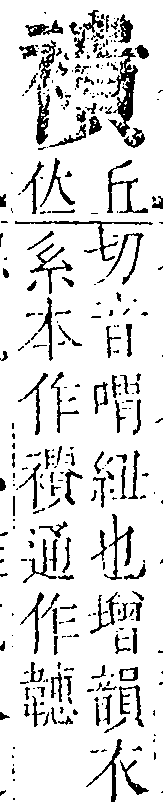 䙡
丘
位
切音喟紐也增韻衣
系本作䙡通作韢